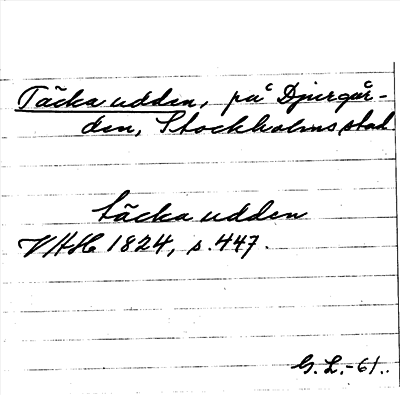 Täcka udden, på Djurgår-
den, Stockholms stad
täcka udden
VAH 1824, s. 447.
G. L. -61.